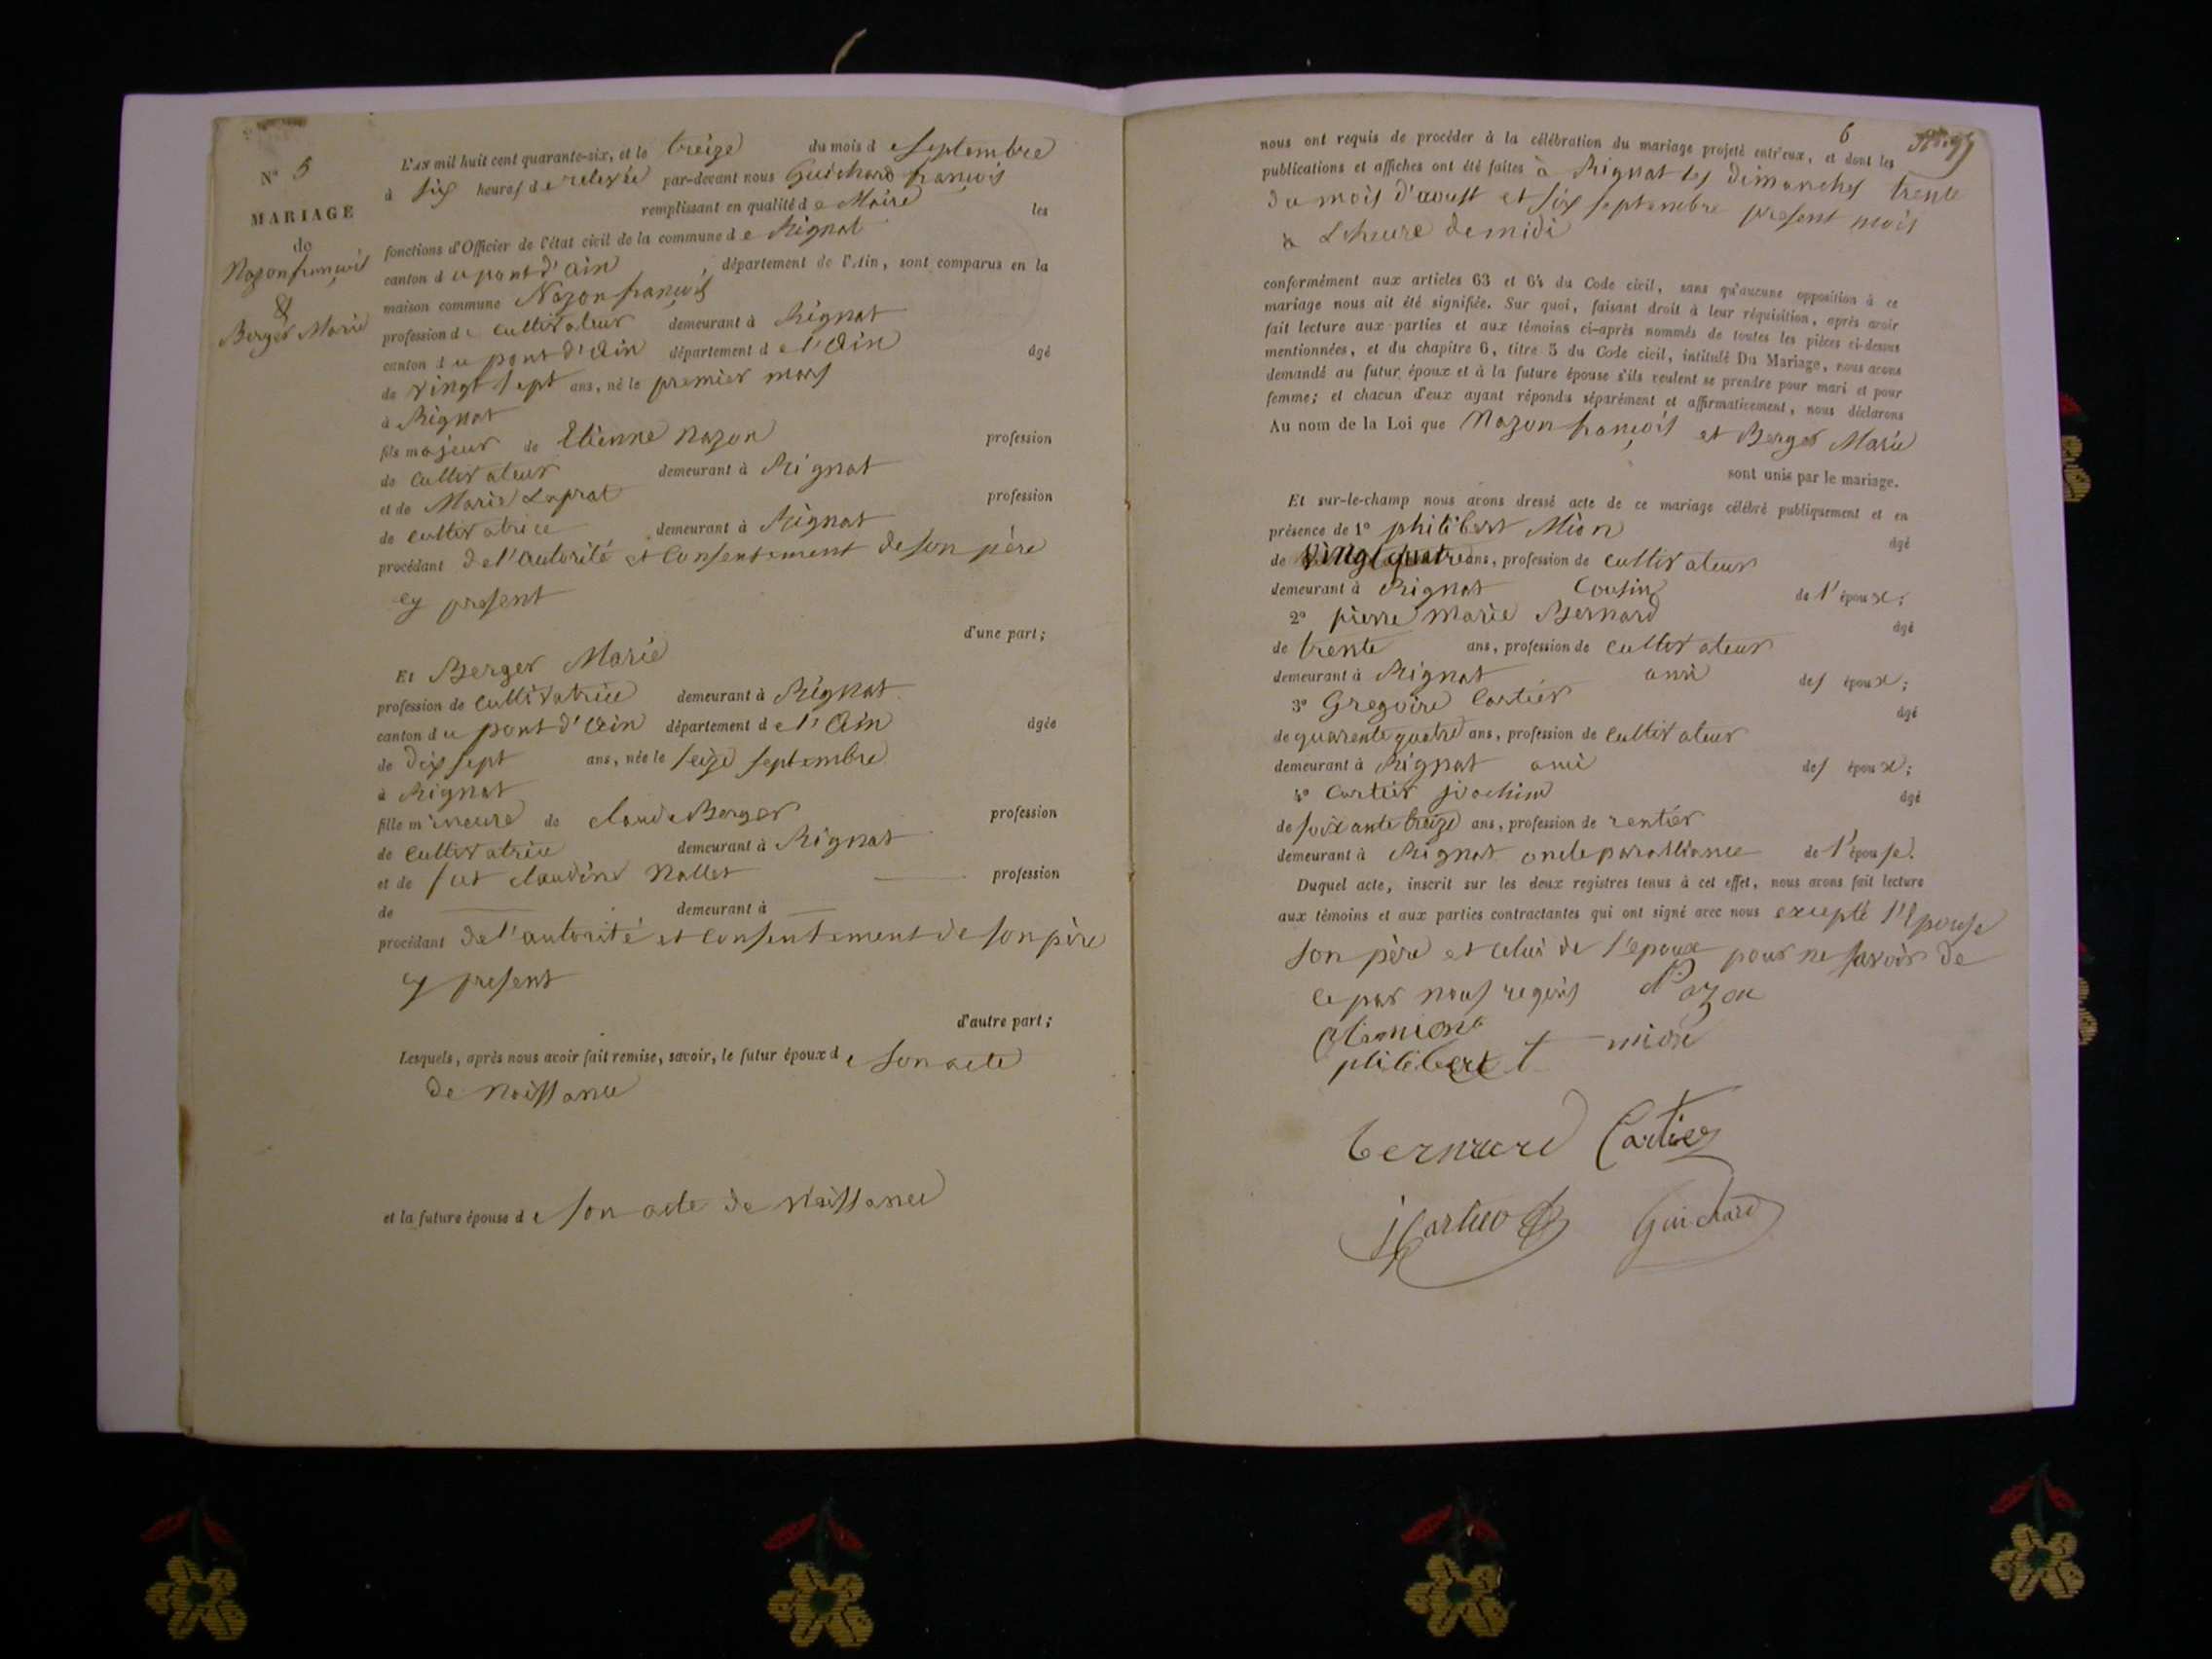 N° 5
MARIAGE
de
Nazon françois
&
Berger Marie
L'AN mil huit cent quarante-six, et le treize du mois de septembre
à six heures de relevée par-devant nous Guichard françois
remplissant en qualité de Maire les
fonctions d'Officier de l'état civil de la commune de Rignat
canton du pont d'ain, département de l'Ain, sont comparus en la
maison commune Nazon françois
profession de cultivateur demeurant à Rignat
canton du pont d'Ain département de l'Ain âgé
de vingt sept ans, né le premier mars
à Rignat
fils majeur de Etienne Nazon profession
de cultivateur demeurant à Rignat
et de Marie Laprat profession
de cultivatrice demeurant à Rignat
procédant de l'autorité et consentement de son père
cy present
d'une part;
Et Berger Marie
profession de cultivatrice demeurant à Rignat
canton du pont d'Ain département de l'Ain âgée
de dix sept ans, née le seize septembre
à Rignat
fille mineure de claude Berger profession
de cultivatrice demeurant à Rignat
et de claudine Nallet profession
de demeurant à
procédant de l'autorité et consentement de son père
cy present
d'autre part;
Lesquels, après nous avoir fait remise, savoir, le futur époux de son acte
de naissance
et la future épouse de son acte de naissance
6
nous ont requis de procéder à la célébration du mariage projeté entr'eux, et dont les
publications et affiches ont été faites à Rignat les dimanches trente
du mois d'aoust et six septembre present mois
à L'heure de midi
conformément aux articles 63 et 64 du Code civil, sans qu'aucune opposition à ce
mariage nous ait été signifiée. Sur quoi, faisant droit à leur réquisition, après avoir
fait lecture aux parties et aux témoins ci-après nommés de toutes les pièces ci-dessus
mentionnées, et du chapitre 6, titre 5 du Code civil, intitulé Du Mariage, nous avons
demandé au futur époux et à la future épouse s'ils veulent se prendre pour mari et pour
femme; et chacun d'eux ayant répondu séparément et affirmativement, nous déclarons
Au nom de la Loi que Nazon françois et Berger Marie
sont unis par le mariage.
Et sur-le-champ nous avons dressé acte de ce mariage célébré publiquement et en
présence de 1° philibert Mion âgé
de vingt quatre ans, profession de cultivateur
demeurant à Rignat Cousin de l'époux;
2° pierre Marie Bernard âgé
de trente ans, profession de cultivateur
demeurant à Rignat ami des époux;
3° Gregoire Cartier âgé
de quarente quatre ans, profession de cultivateur
demeurant à Rignat ami des époux;
4° Cartier joachim âgé
de soixante treize ans, profession de rentier
demeurant à Rignat oncle par alliance de l'épouse.
Duquel acte, inscrit sur les deux registres tenus à cet effet, nous avons fait lecture
aux témoins et aux parties contractantes qui ont signé avec nous excepté l'Epouse
son père et celui de l'epoux pour ne savoir de
ce par nous requis
philibert mion
bernard Cartier
Guichard